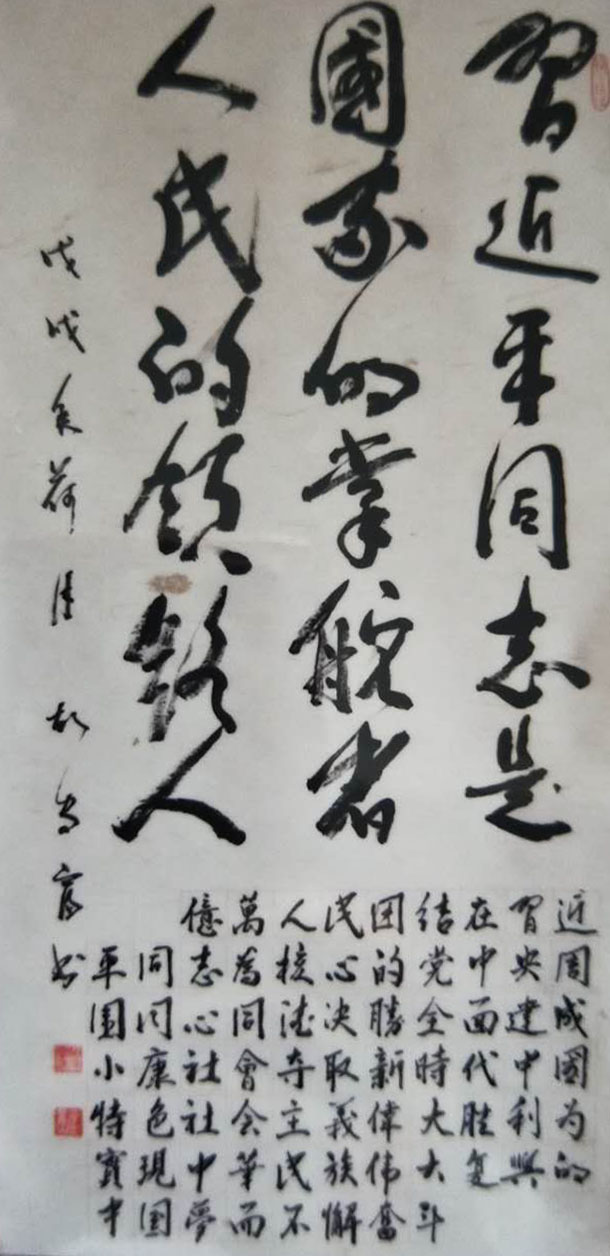 習近平同志是
國家的掌舵者
人民的領路人
戊戌年荷月
书
億萬人民团结在習近
平同志為核心的党中央周
圍同心同德决勝全面建成
小康社會夺取新時代中國
特色社会主義偉大胜利为
實現中華民族伟大复興的
中国夢而不懈奮斗